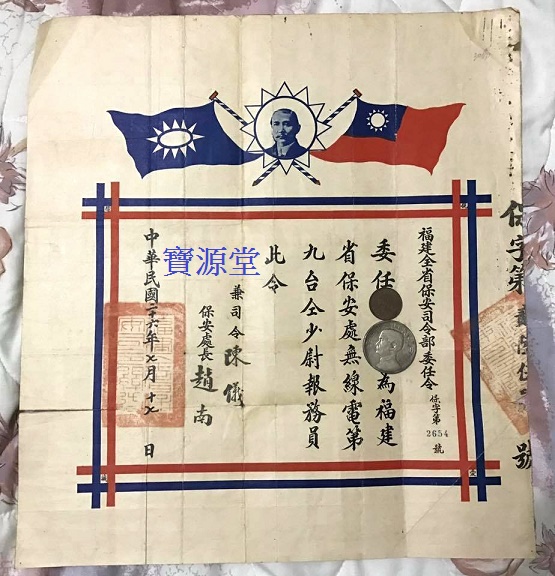 福建全省保安司令部委任令
保字第
2654
號
委任
為福建
省保安處無線電第
九台仝少尉報務員
此令
兼司令陳儀
保安處長趙南
中華民國二十六年七月十七日
寶源堂
保字第
號